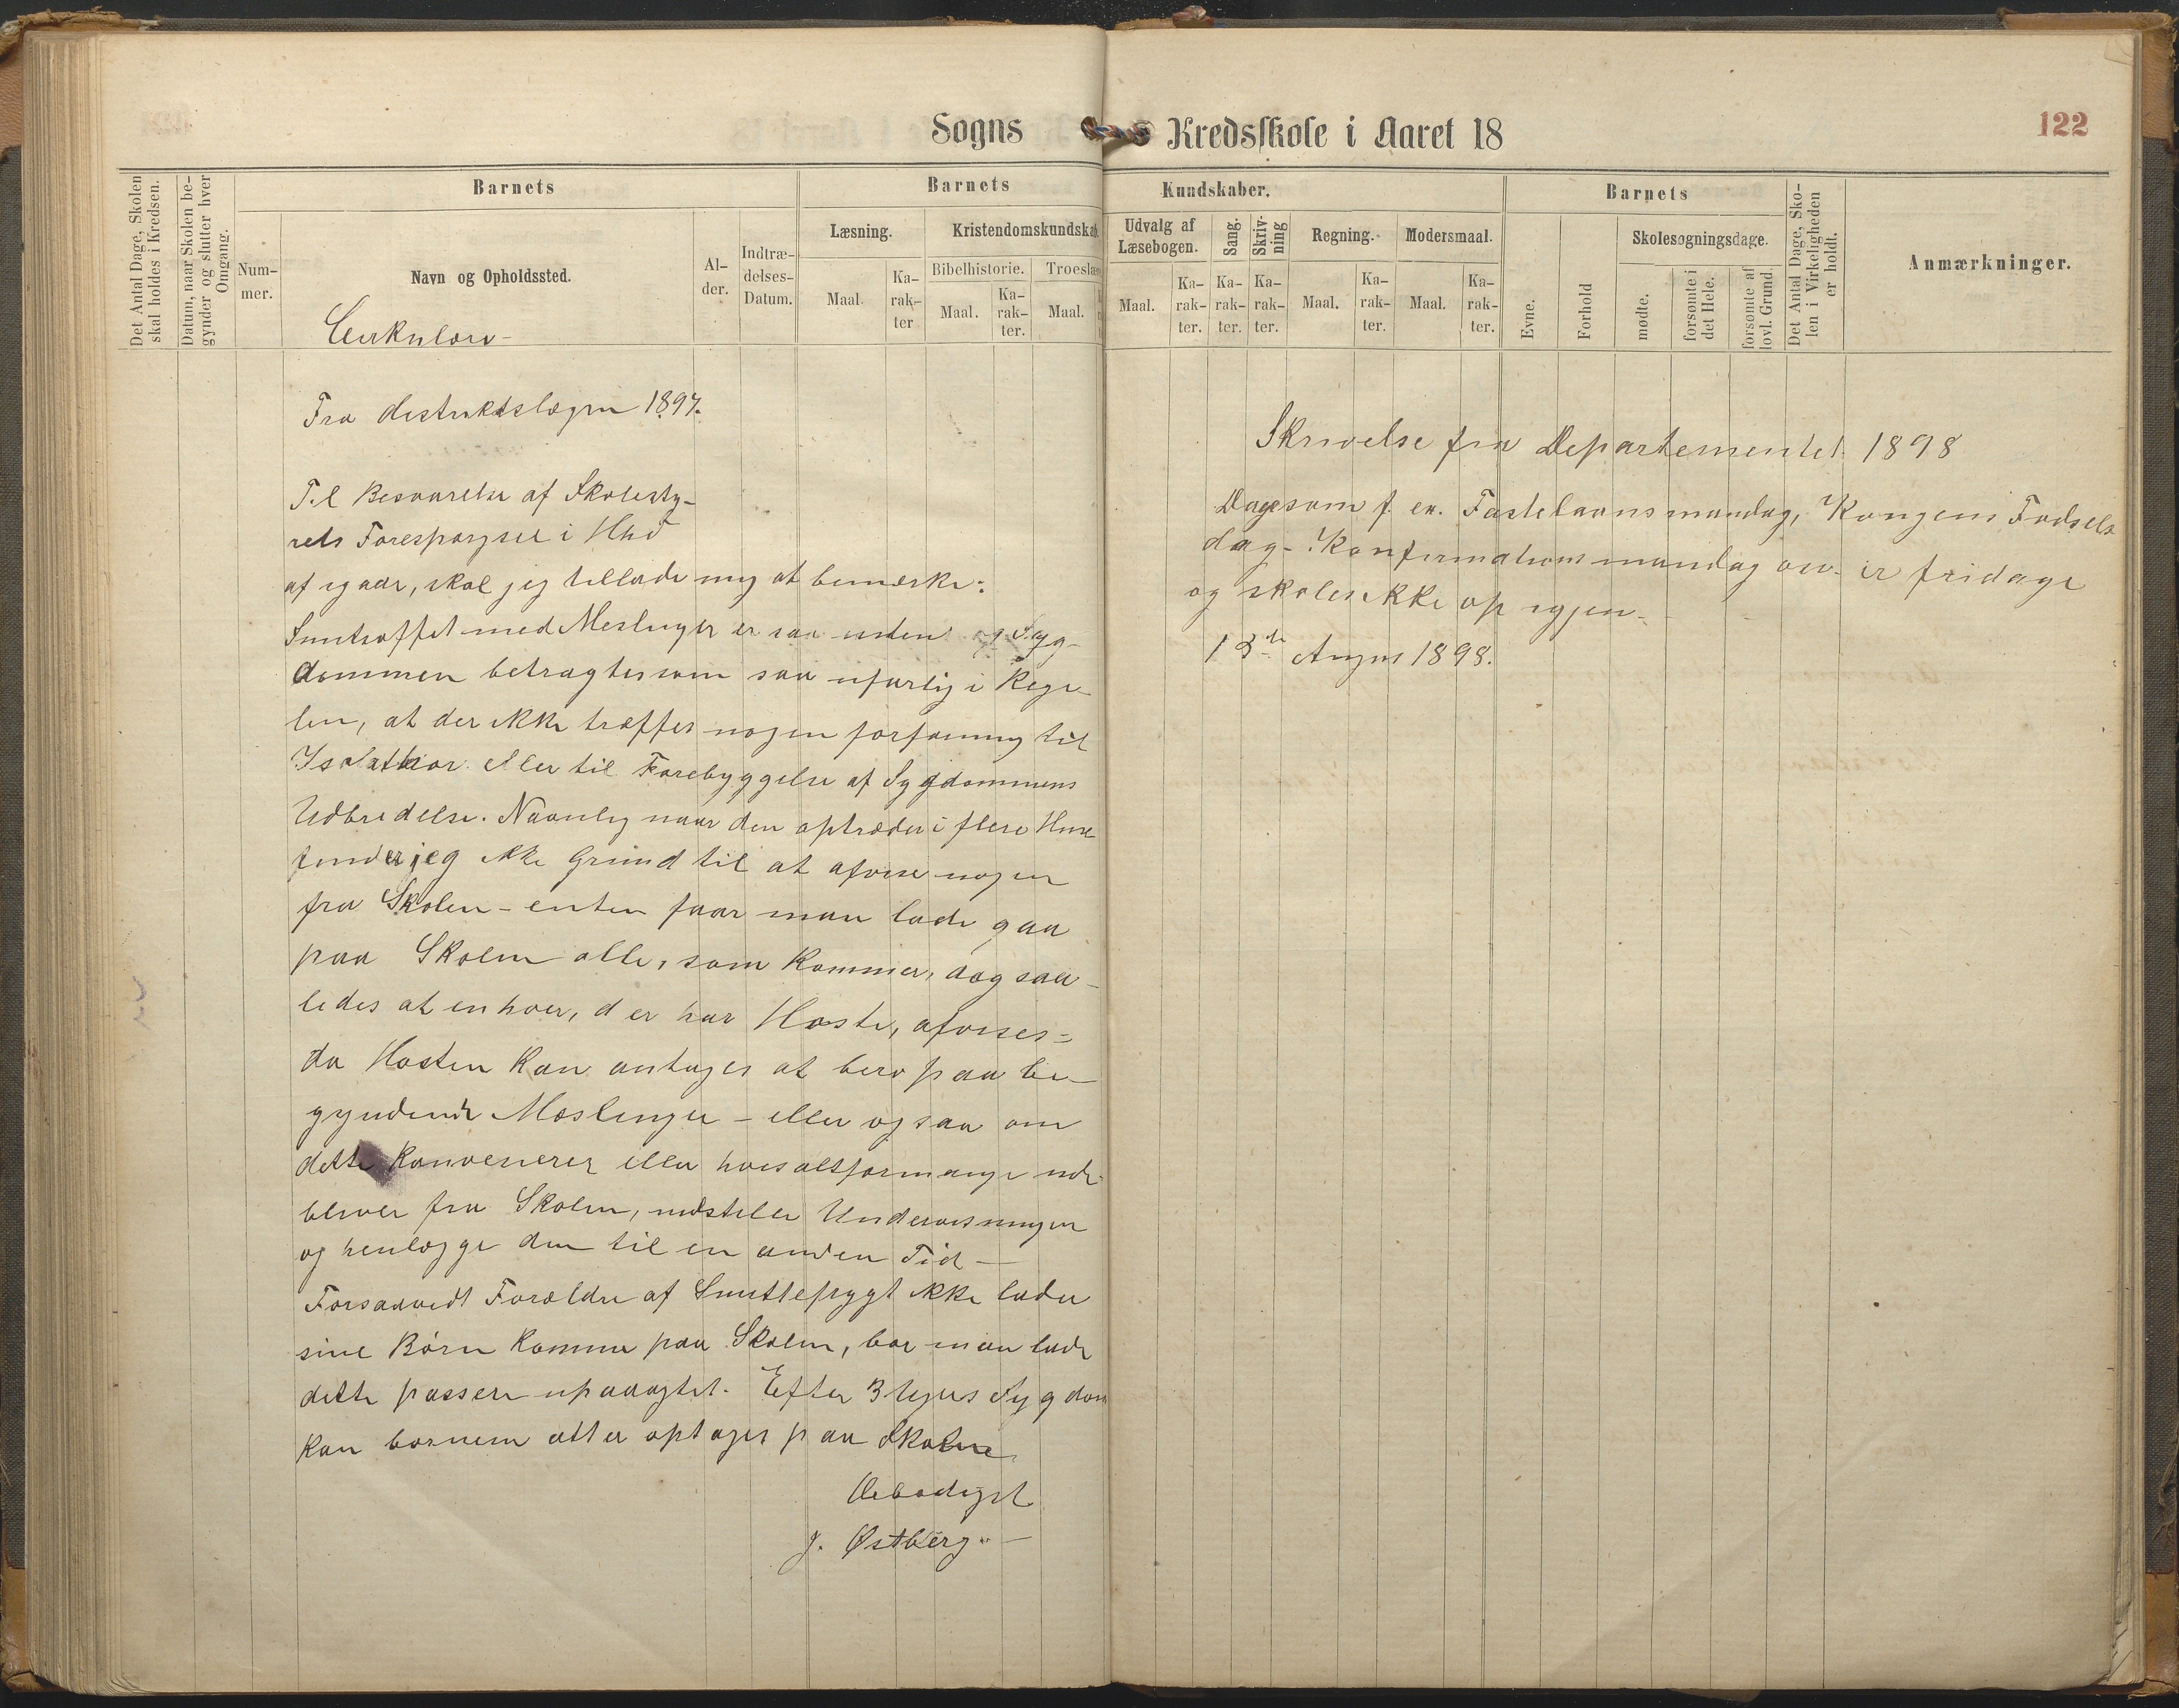 Sogns Kredsskole i Aaret 18
122
Det Antal Dage, Skolen skal holdes i Kredsen.
Datum, naar Skolen begynder og slutter hver Omgang.
Barnets
Num-
mer.
Navn og Opholdssted.
Al-
der.
Indtræ-
delses-
Datum.
Barnets Kundskaber.
Læsning.
Maal.
Ka-
rak-
ter
Kristendomskundskab.
Bibelhistorie.
Maal.
Ka-
rak-
ter.
Troeslære
Maal.
Udvalg af
Læsebogen.
Maal.
Ka-
rak-
ter.
Sang.
Ka-
rak-
ter.
Skriv-
ning
Ka-
rak-
ter.
Regning.
Maal.
Ka-
rak-
ter.
Modersmaal.
Maal.
Ka-
rak-
ter.
Barnets
Evne.
Forhold
Skolesøgningsdage.
mødte.
forsømte i
det Hele.
forsømte af
lovl. Grund.
Det Antal Dage, Sko-
len i Virkeligheden
er holdt.
Anmærkninger.
Cirkulære-
Fra distriktslægen 1897.
Til Besvarelse af Skolesty-
rets Forespørgsel i
af igaar, skal jeg tillade mig at bemærke:
Smitstoffet med Meslinger er saa og Syg-
dommen betragtes som saa ufarlig i Rege-
len, at der ikke træffes nogen forføining til
Isolation eller til Forebyggelse af Sygdommens
Udbredelse. Navnlig naar den optræder i flere Huse
finder jeg ikke Grund til at afvise nogen
fra Skolen - enten faar man lade gaa
paa Skolen alle, som kommer, dog saa-
ledes at enhver, der har Hoste, afvises -
da Hosten kan antages at bero paa be-
gyndende Mæslinger - eller ogsaa om
dette konvenerer eller hvis altfor mange ude-
bliver fra Skolen, indstille Undervisningen
og henlægge den til en anden Tid -
Forsaavidt Forældre af Smittefrygt ikke lader
sine Børn komme paa Skolen, bør man lade
dette passere upaaagtet. Efter 3 Ugers Sygdom
kan børnene atter optages paa Skolen
Ærbødigst
J. Østberg.
Skrivelse fra Departementet 1898
Dage som f. ex. Fastelavnsmandag, Kongens Fødsels
dag - Konfirmationsmandag osv. er fridage
og skoles ikke op igjen.
13de August 1898.